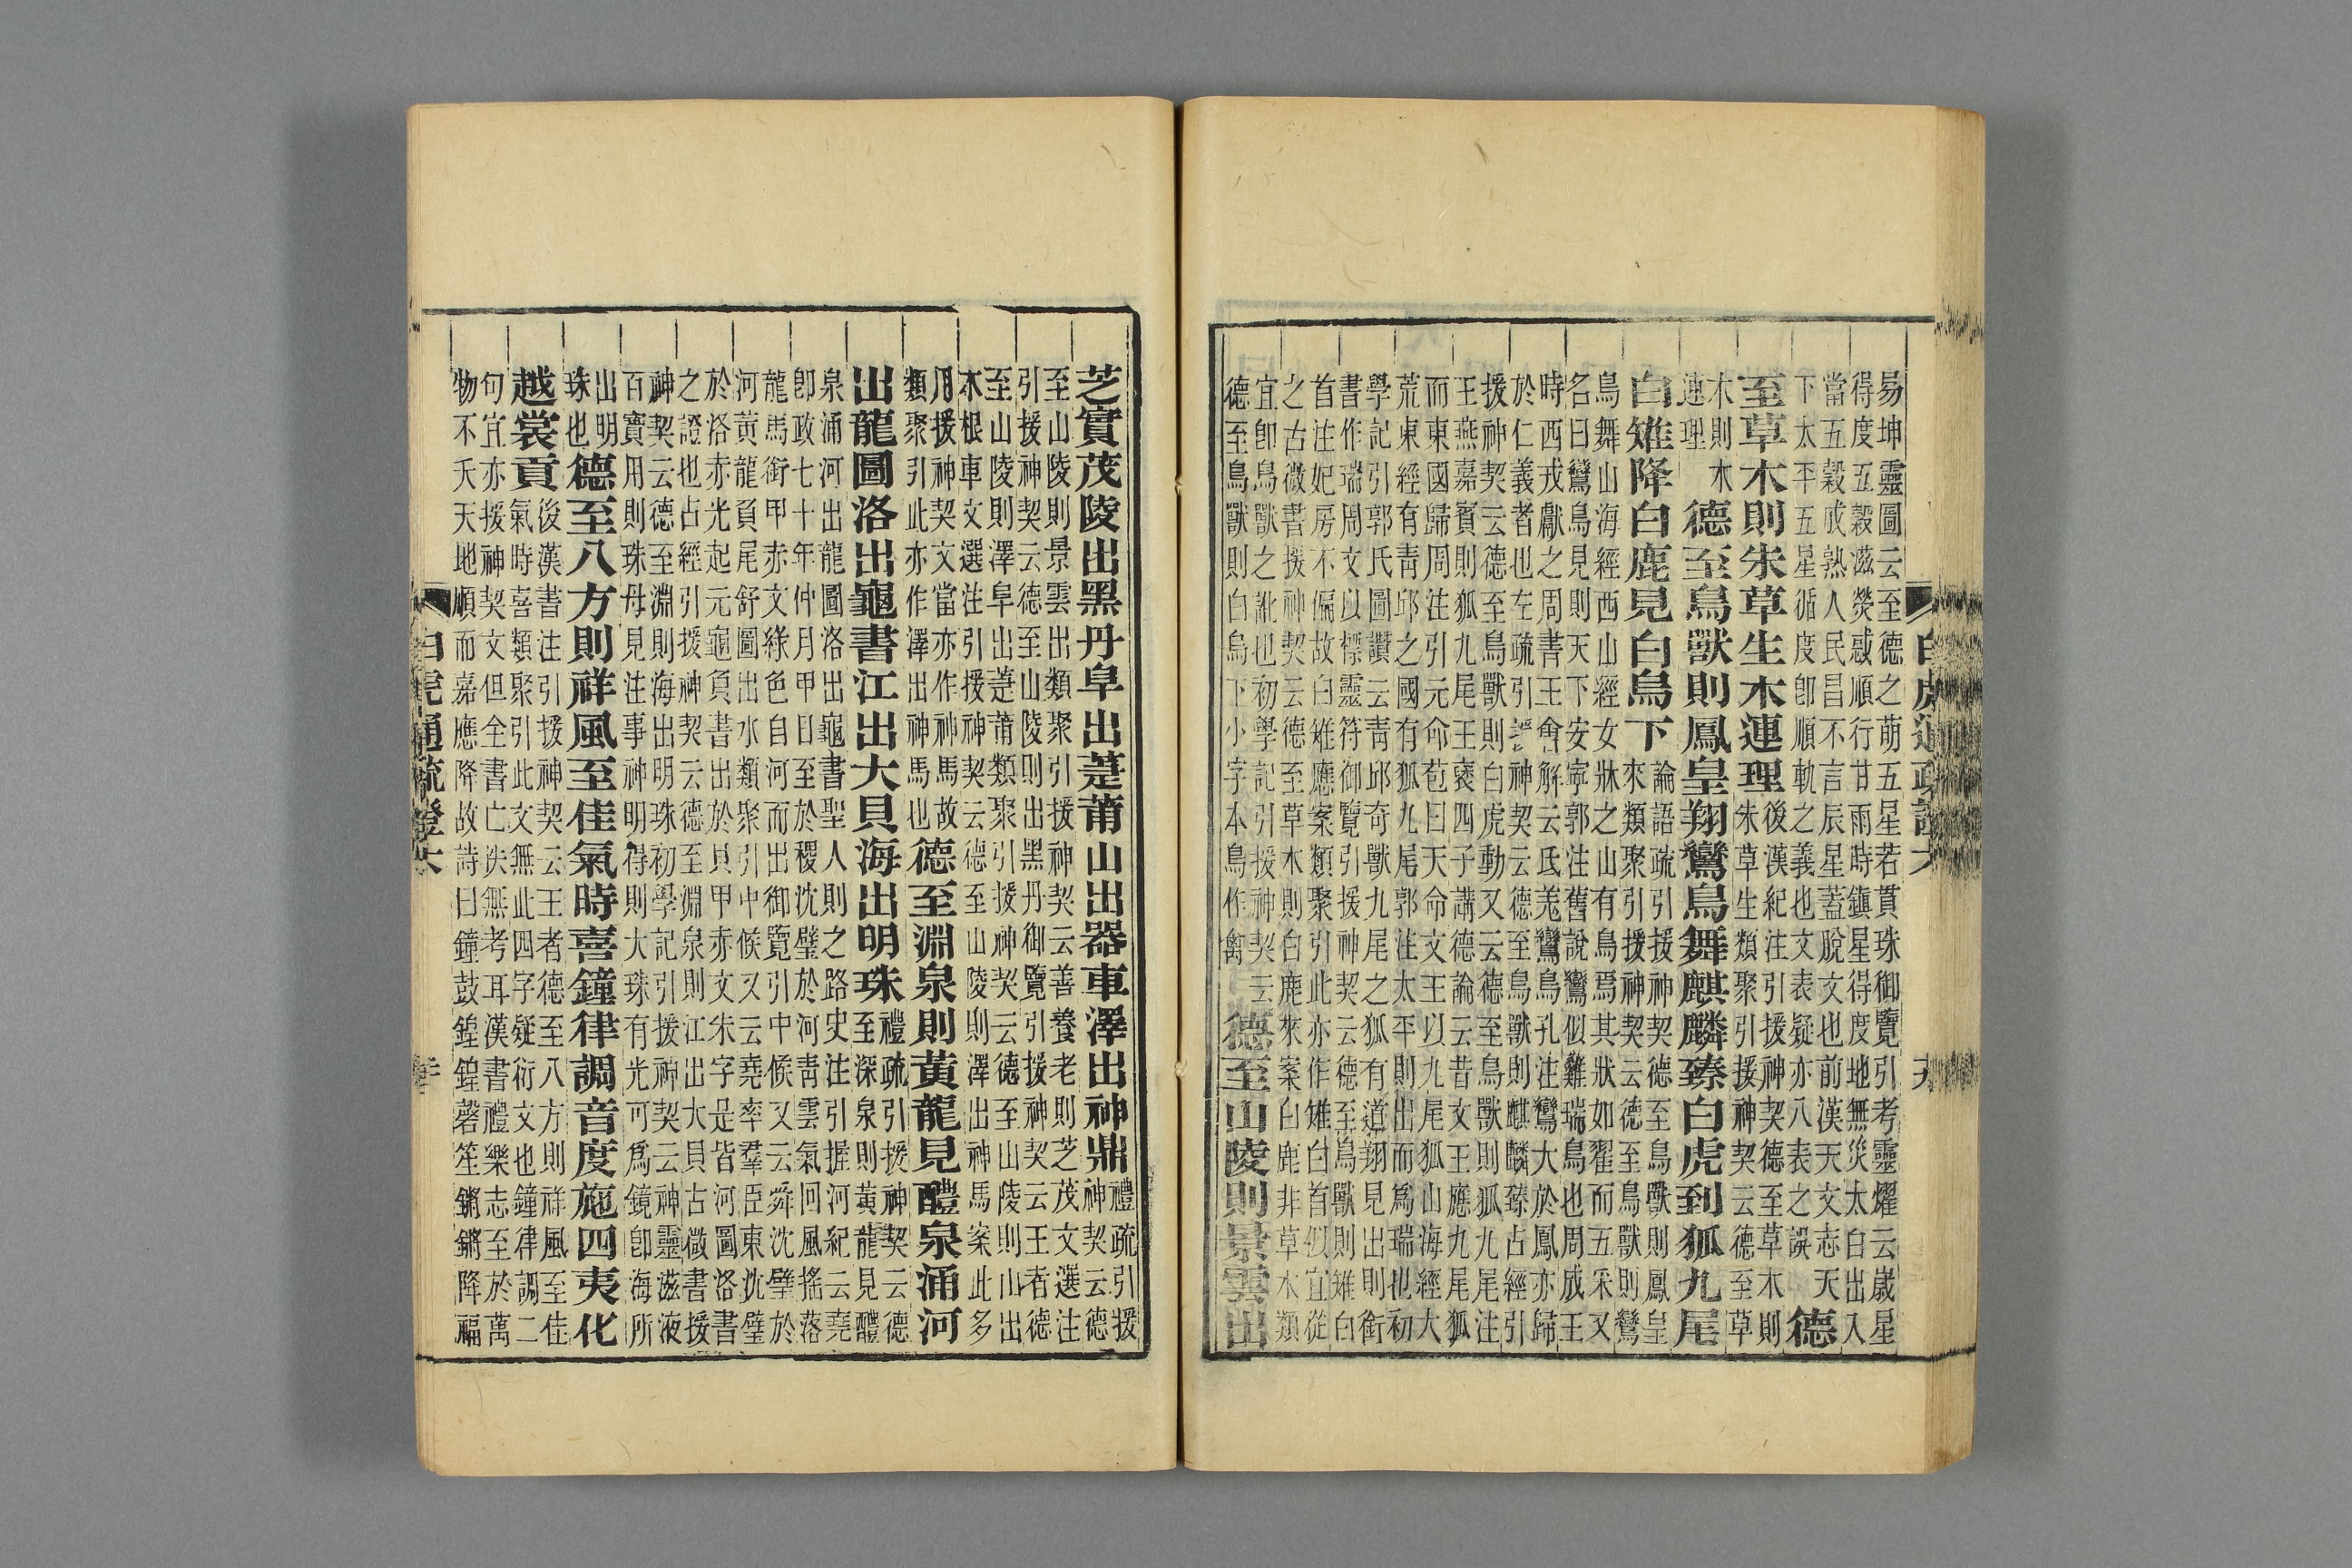 白虎通疏證六 十九
易坤靈圖云至德之萌五星若貫珠御覽引考靈耀云歲星
得度五穀滋熒惑順行甘雨時鎭星得度地無災太白出入
當五穀成熟人民昌不言辰星蓋脫文也前漢天文志天
下太平五星循度卽順軌之義也文表疑亦八表之誤 德
至草木則朱草生木連理 後漢紀注引援神契德至草木則
朱草生類聚引援神契云德至草
木則木
連理 德至鳥獸則鳳皇翔鸞鳥舞麒麟臻白虎到狐九尾
白雉降白鹿見白烏下 論語疏引援神契云德至鳥獸則鳳皇
來類聚引援神契云德至鳥獸則鸞
鳥舞山海經西山經女牀之山有鳥焉其狀如翟而五采又
名曰鸞鳥見則天下安寧郭注舊說鸞似雞瑞鳥也周成王
時西戎獻之周書王會解云氐羌鸞鳥孔注鸞大於鳳亦歸
於仁義者也左疏引援神契云德至鳥獸則麒麟臻占經引
援神契云德至鳥獸則白虎動又云德至鳥獸則狐九尾注
王燕嘉賓則狐九尾王褒四子講德論云昔文王應九尾狐
而東國歸周注引元命苞曰天命文王以九尾狐山海經大
荒東經有青邱之國有狐九尾郭注太平則出而爲瑞也初
學記引郭氏圖讚云青邱奇獸九尾之狐有道翔見出則銜
書作瑞周文以標靈符御覽引援神契云德至鳥獸則雉白
首注妃房不偏故白雉應案類聚引此亦作雉白首似宜從
之古微書援神契云德至草木則白鹿來案白鹿非草木類
宜卽鳥獸之訛也初學記引援神契云
德至鳥獸則白烏下小字本烏作禽 德至山陵則景雲出
芝實茂陵出黑丹阜出萐莆山出器車澤出神鼎 禮疏引援
神契云德
至山陵則景雲出類聚引援神契云善養老則芝茂文選注
引援神契云德至山陵則出黑丹御覽引援神契云王者德
至山陵則澤阜出萐莆類聚引援神契云德至山陵則山出
木根車文選注引援神契云德至山陵則澤出神馬案此多
用援神契文當亦作神馬故
類聚引此亦作澤出神馬也 德至淵泉則黃龍見醴泉涌河
出龍圖洛出龜書江出大貝海出明珠 禮疏引援神契云德
至深泉則黃龍見醴
泉涌河出龍圖洛出龜書聖人則之路史注引握河紀云堯
卽政七十年仲月甲日至於稷沈璧於河青雲氣回風搖落
龍馬銜甲赤文綠色自河而出御覽引中候又云舜沈璧於
河黃龍負尾舒圖出水類聚引中候又云堯率羣臣東沈璧
於洛赤光起元龜負書出於貝甲赤文朱字是皆河圖洛書
之證也占經引援神契云德至淵泉則江出大貝古微書援
神契云德至淵則海出明珠初學記引援神契云神靈滋液
百寶用則珠母見注事神明得則大珠有光可爲鏡卽海所
出明
珠也 德至八方則祥風至佳氣時喜鐘律調音度施四夷化
越裳貢 後漢書注引援神契云王者德至八方則祥風至佳
氣時喜類聚引此文無此四字疑衍文也鐘律調二
句宜亦援神契文但全書亡佚無考耳漢書禮樂志至於萬
物不夭天地順而嘉應降故詩曰鐘鼓鍠鍠磬筦鏘鏘降福
白虎通疏證六